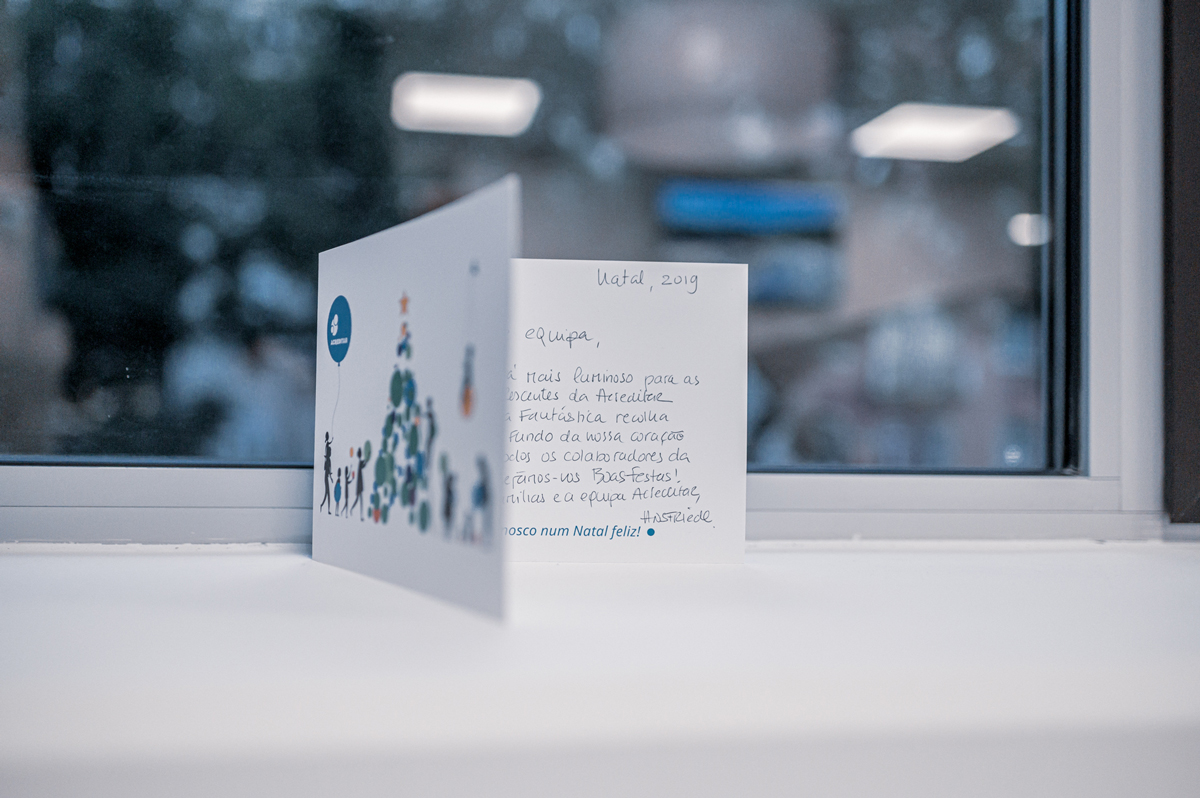 ACREDITAR
Natal, 2019
equipa,
á mais luminoso para as
escentes da Acreditar
a Fantástica recolha
Fundo da nossa coração
pelos os colaboradores da
Boas Festas!
mílias e a equipa Acreditar,
nosco num Natal feliz!